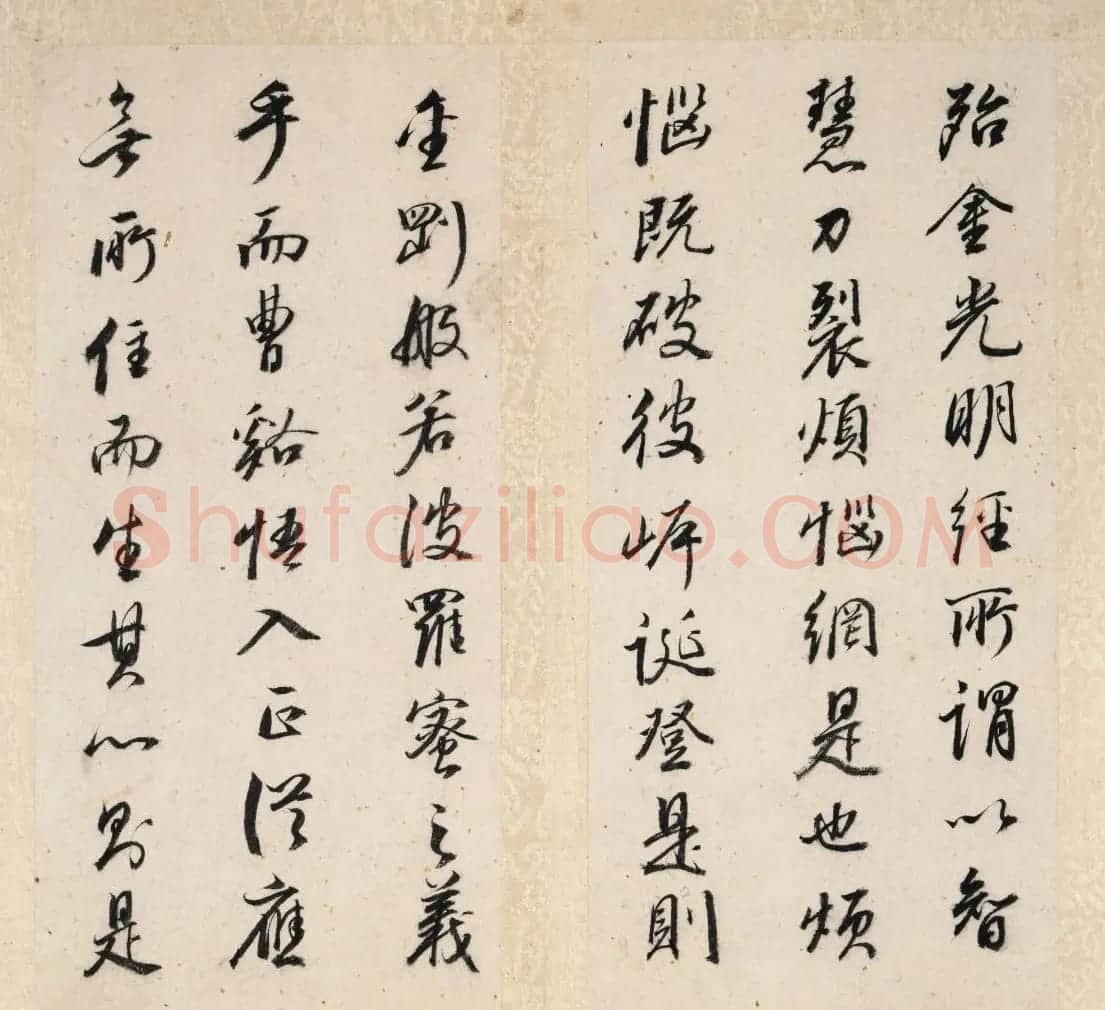 殆金光明經所謂以智
慧刀裂煩惱網是也煩
惱既破彼岸誕登是則
金剛般若波羅蜜之義
乎而曹谿悟入正從應
無所住而生其心則是
Shufaziliao.COM